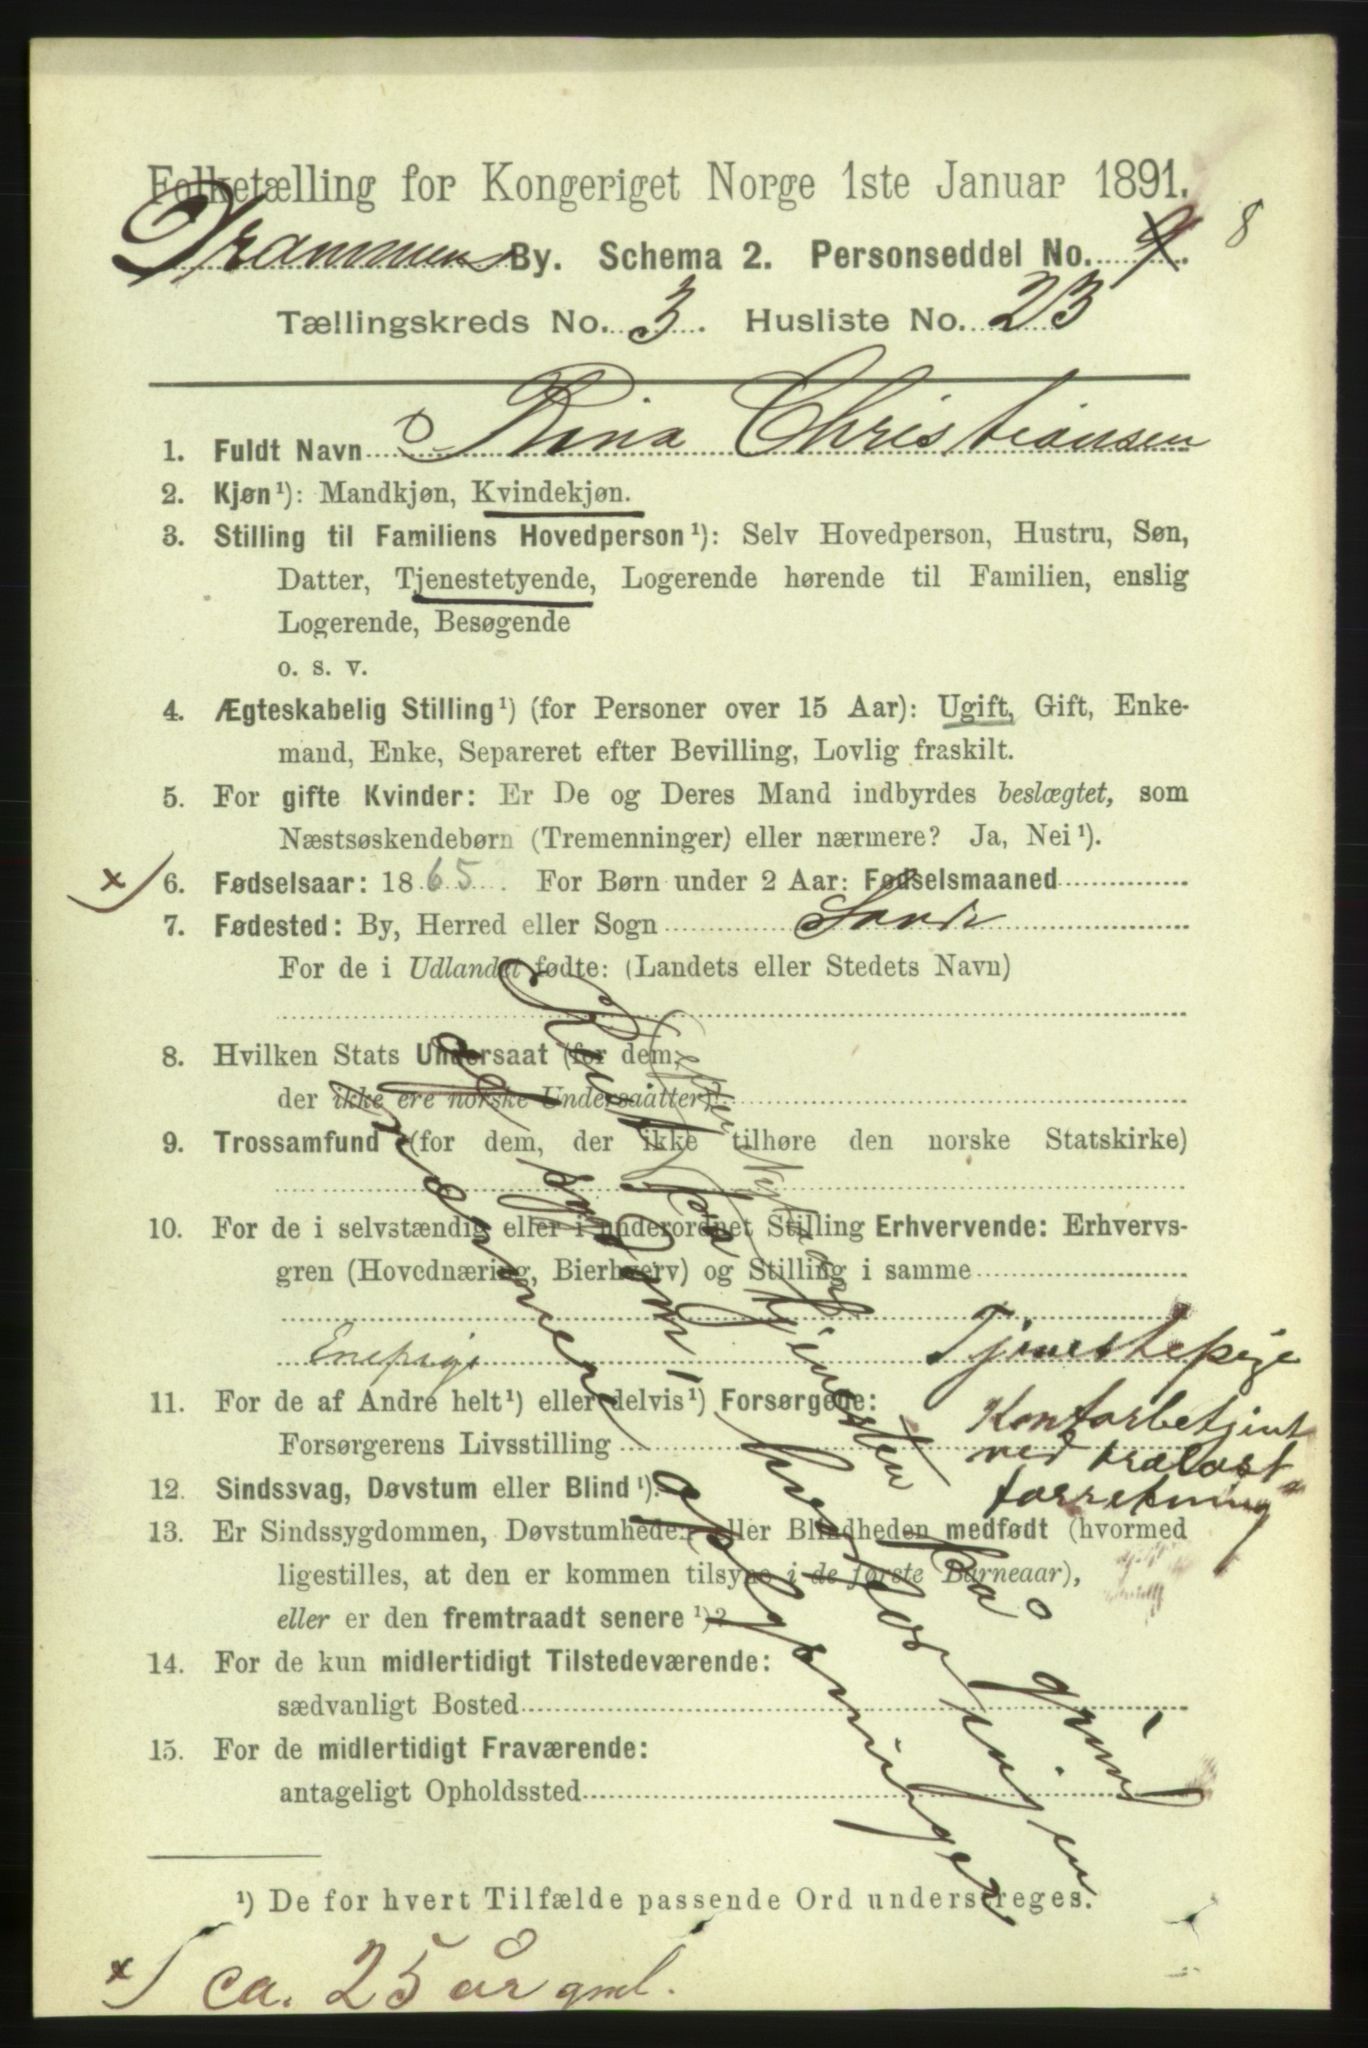 Folketælling for Kongeriget Norge 1ste Januar 1891.
Drammens By. Schema 2. Personseddel No. 9. 8
Tællingskreds No. 3. Husliste No. 23
1. Fuldt Navn Rina Christiansen
2. Kjøn¹): Mandkjøn, Kvindekjøn.
3. Stilling til Familiens Hovedperson¹): Selv Hovedperson, Hustru, Søn,
Datter, Tjenestetyende, Logerende hørende til Familien, enslig
Logerende, Besøgende
o. s. v.
4. Ægteskabelig Stilling¹) (for Personer over 15 Aar): Ugift, Gift, Enke-
mand, Enke, Separeret efter Bevilling, Lovlig fraskilt.
5. For gifte Kvinder: Er De og Deres Mand indbyrdes beslægtet, som
Næstsøskendebørn (Tremenninger) eller nærmere? Ja, Nei¹).
x) 6. Fødselsaar: 1865. For Børn under 2 Aar: Fødselsmaaned
7. Fødested: By, Herred eller Sogn Sande
For de i Udlandet fødte: (Landets eller Stedets Navn)
8. Hvilken Stats Undersaat (for dem,
der ikke ere norske Undersaatter)
9. Trossamfund (for dem, der ikke tilhøre den norske Statskirke)
10. For de i selvstændig eller i underordnet Stilling Erhvervende: Erhvervs-
gren (Hovednæring, Bierhverv) og Stilling i samme
Enepige Tjenestepige
11. For de af Andre helt¹) eller delvis¹) Forsørgede:
Forsørgerens Livsstilling
Kontorbetjent
ved trælast
forretning
12. Sindssvag, Døvstum eller Blind¹).
13. Er Sindssygdommen, Døvstumheden eller Blindheden medfødt (hvormed
ligestilles, at den er kommen tilsyne i de første Barneaar),
eller er den fremtraadt senere¹)?
14. For de kun midlertidigt Tilstedeværende:
sædvanligt Bosted
15. For de midlertidigt Fraværende:
antageligt Opholdssted
Reist fra tjenesten paa grund
af sygdom, hvorfor ingen
senere oplysninger
¹) De for hvert Tilfælde passende Ord understreges.
x) ca. 25 år gml.